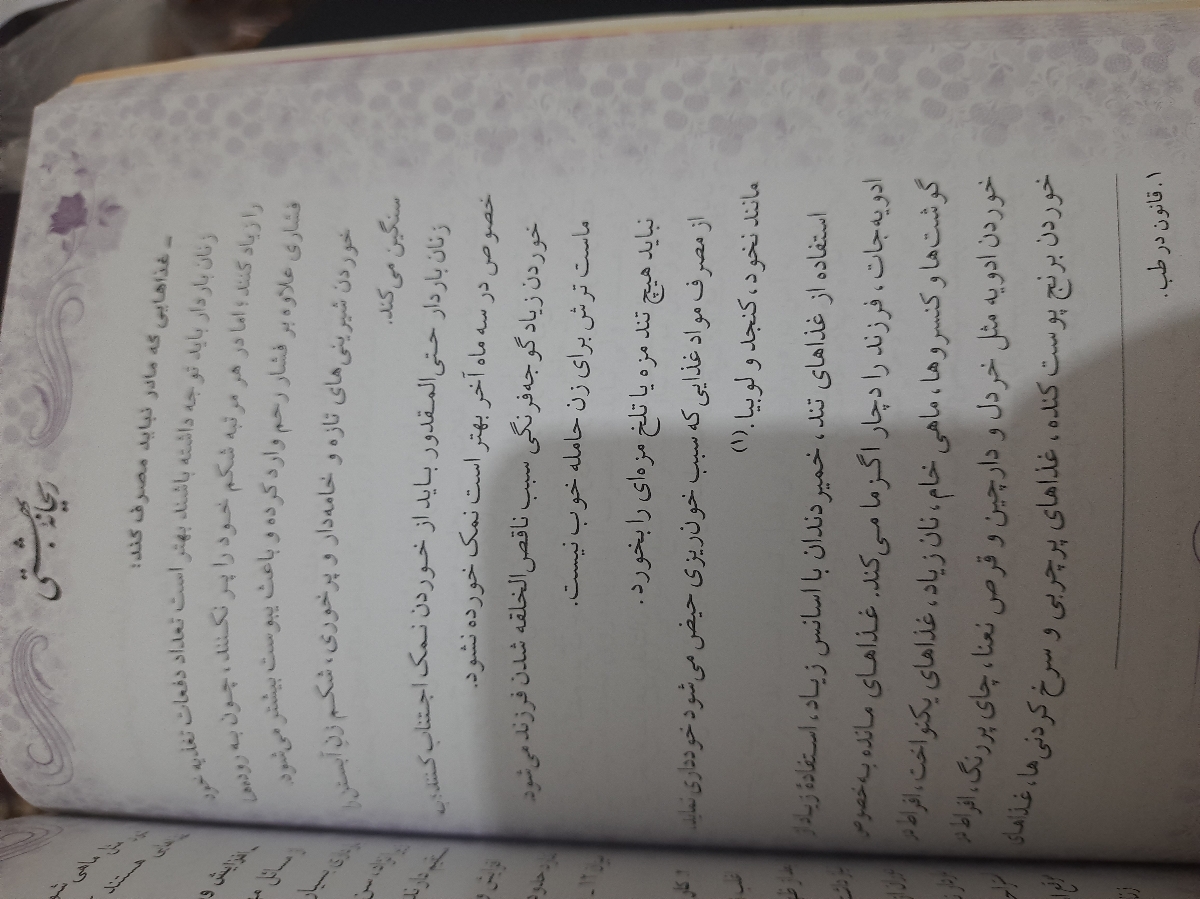 ریحانهٔ بهشتی
ـ غذاهایی که مادر نباید مصرف کند:
زنان باردار باید توجه داشته باشند بهتر است تعداد دفعات تغذیه خود
را زیاد کنند؛ اما در هر مرتبه شکم خود را پر نکنند، چون به روده‌ها
فشاری علاوه بر فشار رحم وارد کرده و باعث یبوست بیشتر می‌شود.
خوردن شیرینی‌های تازه و خامه‌دار و پرخوری، شکم زن آبستن را
سنگین می‌کند.
زنان باردار حتی‌المقدور باید از خوردن نمک اجتناب کنند؛ به
خصوص در سه ماه آخر بهتر است نمک خورده نشود.
خوردن زیاد گوجه‌فرنگی سبب ناقص‌الخلقه شدن فرزند می‌شود.
ماست ترش برای زن حامله خوب نیست.
نباید هیچ تند مزه یا تلخ مزه‌ای را بخورد.
از مصرف مواد غذایی که سبب خون‌ریزی حیض می‌شود خودداری نماید.
مانند نخود، کنجد و لوبیا.(۱)
استفاده از غذاهای تند، خمیردندان با اسانس زیاد، استفاده زیاد از
ادویه‌جات، فرزند را دچار اگزما می‌کند. غذاهای مانده به‌خصوص
گوشت‌ها و کنسروها، ماهی خام، نان زیاد، غذاهای یکنواخت، افراط در
خوردن ادویه مثل خردل و دارچین و قرص نعنا، چای پررنگ، افراط در
خوردن برنج پوست کنده، غذاهای پرچربی و سرخ کردنی‌ها، غذاهای
۱. قانون در طب.